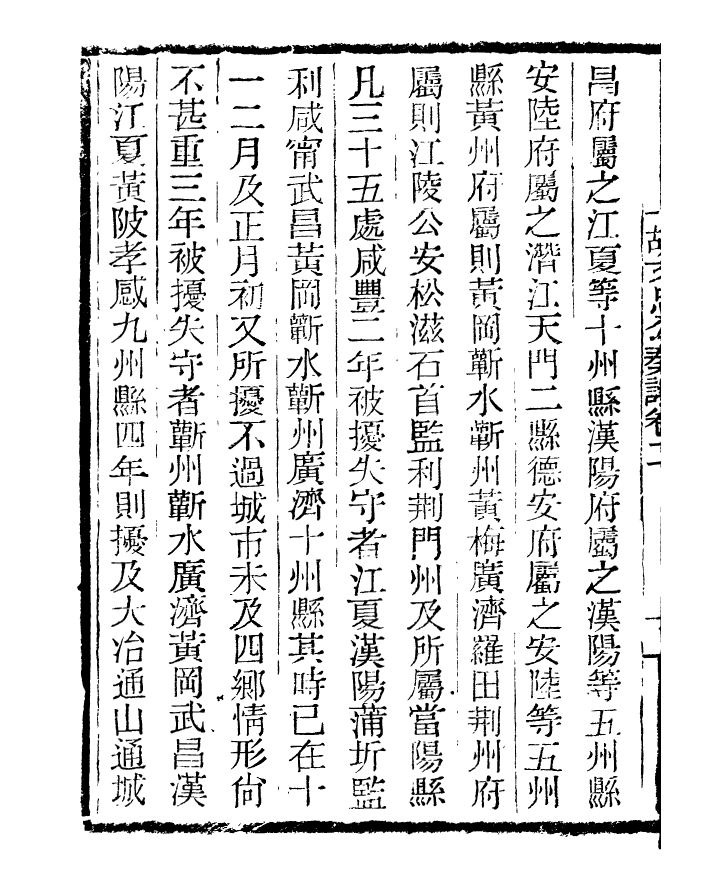 昌府屬之江夏等十州縣漢陽府屬之漢陽等五州縣
安陸府屬之潛江天門二縣德安府屬之安陸等五州
縣黃州府屬則黃岡蘄水蘄州黃梅廣濟羅田荆州府
屬則江陵公安松滋石首監利荆門州及所屬當陽縣
凡三十五處咸豐二年被擾失守者江夏漢陽蒲圻監
利咸甯武昌黃岡蘄水蘄州廣濟十州縣其時已在十
一二月及正月初又所擾不過城市未及四鄉情形尙
不甚重三年被擾失守者蘄州蘄水廣濟黃岡武昌漢
陽江夏黃陂孝感九州縣四年則擾及大冶通山通城